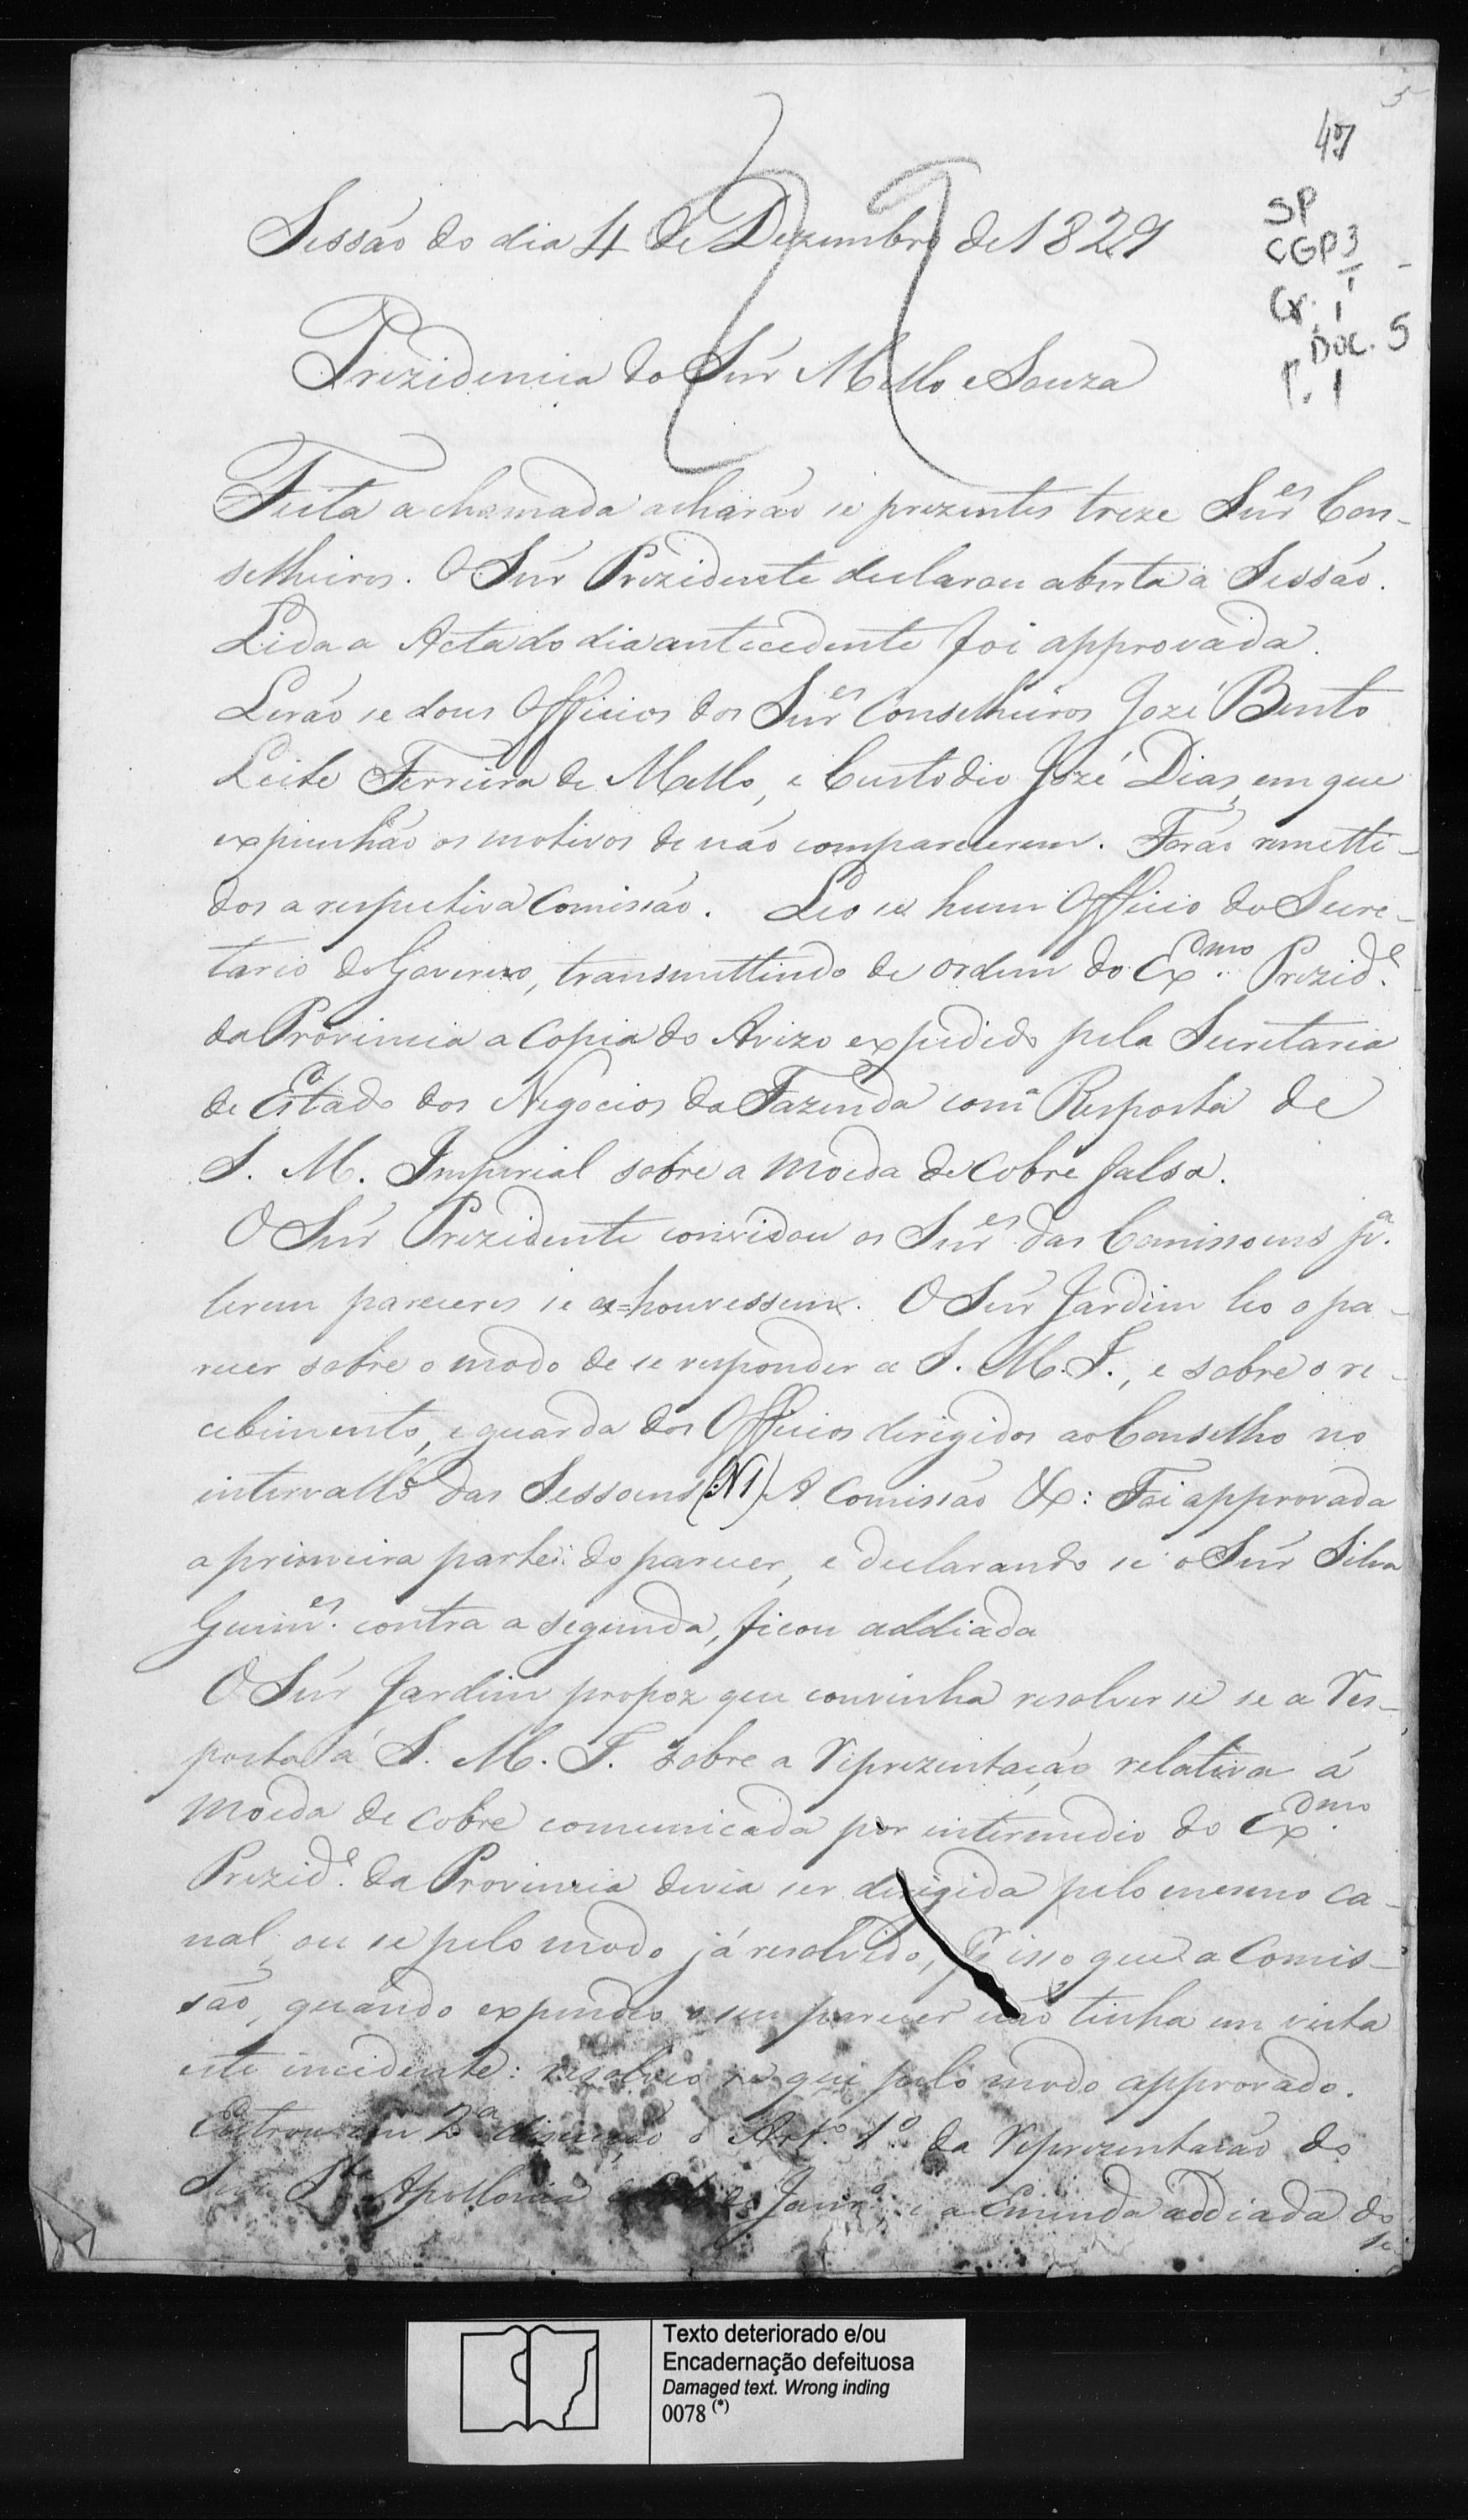 5
47
SP
CGP 3
1
Cx. 1
Doc. 5
P. 1
Sessão do dia 4 de Dezembro de 1829
Prezidencia do Snr Mello e Souza
Feita a chamada acharão se prezentes treze Snr.es Con-
selheiros. O Snr Prezidente declarou aberta a Sessão.
Lida a Acta do dia antecedente foi approvada.
Lerão se dous Officios dos Snr.es Conselheiros Jozé Bento
Leite Ferreira de Mello, e Custodio Jozé Dias, em que
expunhão os motivos de não comparecerem. Forão remetti-
dos a respectiva Comissão. Leo se hum Officio do Secre-
tario do Governo, transmittindo de ordem do Ex.mo Prezid.e
da Provincia a Copia do Avizo expedido pela Secretaria
de Estado dos Negocios da Fazenda com a Resposta de
S. M. Imperial sobre a moeda de cobre falsa.
O Snr Prezidente convidou os Snr.es das Comissoens p.a
lerem pareceres se os houvessem. O Snr Jardim leo o pa-
recer sobre o modo de se responder a S. M. I., e sobre o re-
cebimento, e guarda dos Officios dirigidos ao Conselho no
intervallo das Sessoens (N1) A Comissão &: Foi approvada
a primeira parte do parecer, e declarando se o Snr Silva
Guim.es contra a segunda, ficou addiada
O Snr Jardim propoz que convinha resolver se se a res-
posta á S. M. I. sobre a reprezentação relativa á
moeda de cobre comunicada por intermedio do Ex.mo
Prezid.e da Provincia devia ser dirigida pelo mesmo ca-
nal, ou se pelo modo já resolvido, p.r isso que a Comis-
são, quando expendeo o seu parecer não tinha em vista
este incidente: resolveo se que pelo modo approvado.
Entrou em 2.a discução o Art.o 1.o da reprezentacão do
Snr S.ta Apollonia de Janr.o, e a Emenda addiada do
Se
Texto deteriorado e/ou
Encadernação defeituosa
Damaged text. Wrong inding
0078 (*)